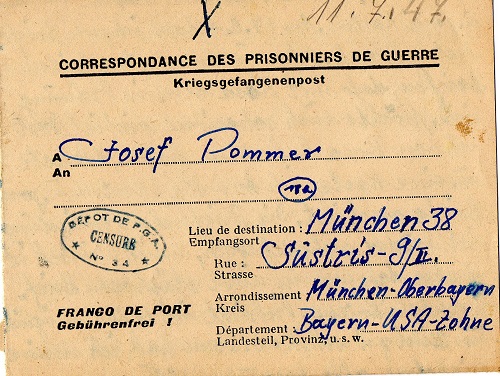 X 11.7.47.
CORRESPONDANCE DES PRISONNIERS DE GUERRE
Kriegsgefangenenpost
A Josef Pommer
An
18a
DÉPOT DE P.G.A.
CENSURE
★ N° 34 ★
Lieu de destination : München 38
Empfangsort
Rue : Süstris-9/II.
Strasse
Arrondissement München-Oberbayern
Kreis
Département : Bayern-USA-Zohne
Landesteil, Provinz, u. s. w.
FRANGO DE PORT
Gebührenfrei !